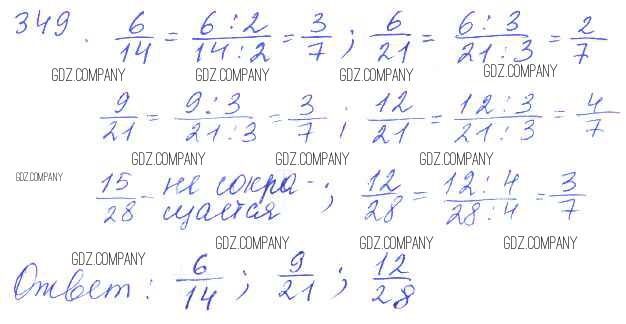 349. 6/14 = 6:2/14:2 = 3/7; 6/21 = 6:3/21:3 = 2/7
GDZ.COMPANY GDZ.COMPANY GDZ.COMPANY GDZ.COMPANY
9/21 = 9:3/21:3 = 3/7; 12/21 = 12:3/21:3 = 4/7
GDZ.COMPANY GDZ.COMPANY GDZ.COMPANY
GDZ.COMPANY
15/28 - не сокра-
щается; 12/28 = 12:4/28:4 = 3/7
GDZ.COMPANY GDZ.COMPANY GDZ.COMPANY
GDZ.COMPANY
Ответ: 6/14; 9/21; 12/28